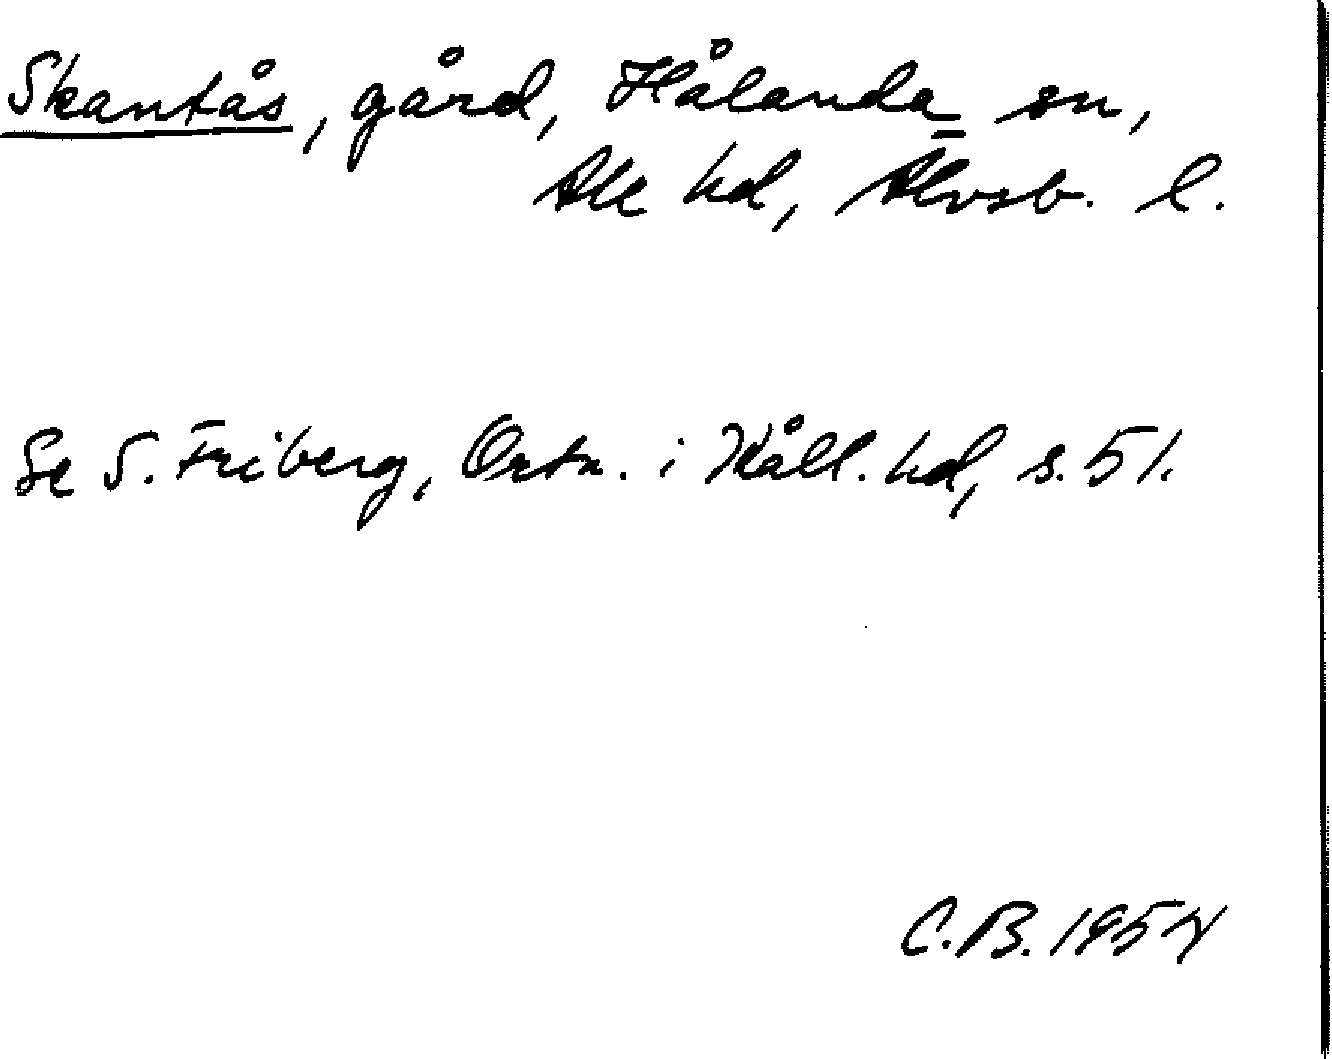 Skantås, gård, Hålanda sn,
Ale hd, Älvsb. l.
Se S. Friberg, Ortn. i Kåll. hd, s. 51.
C.B. 1954